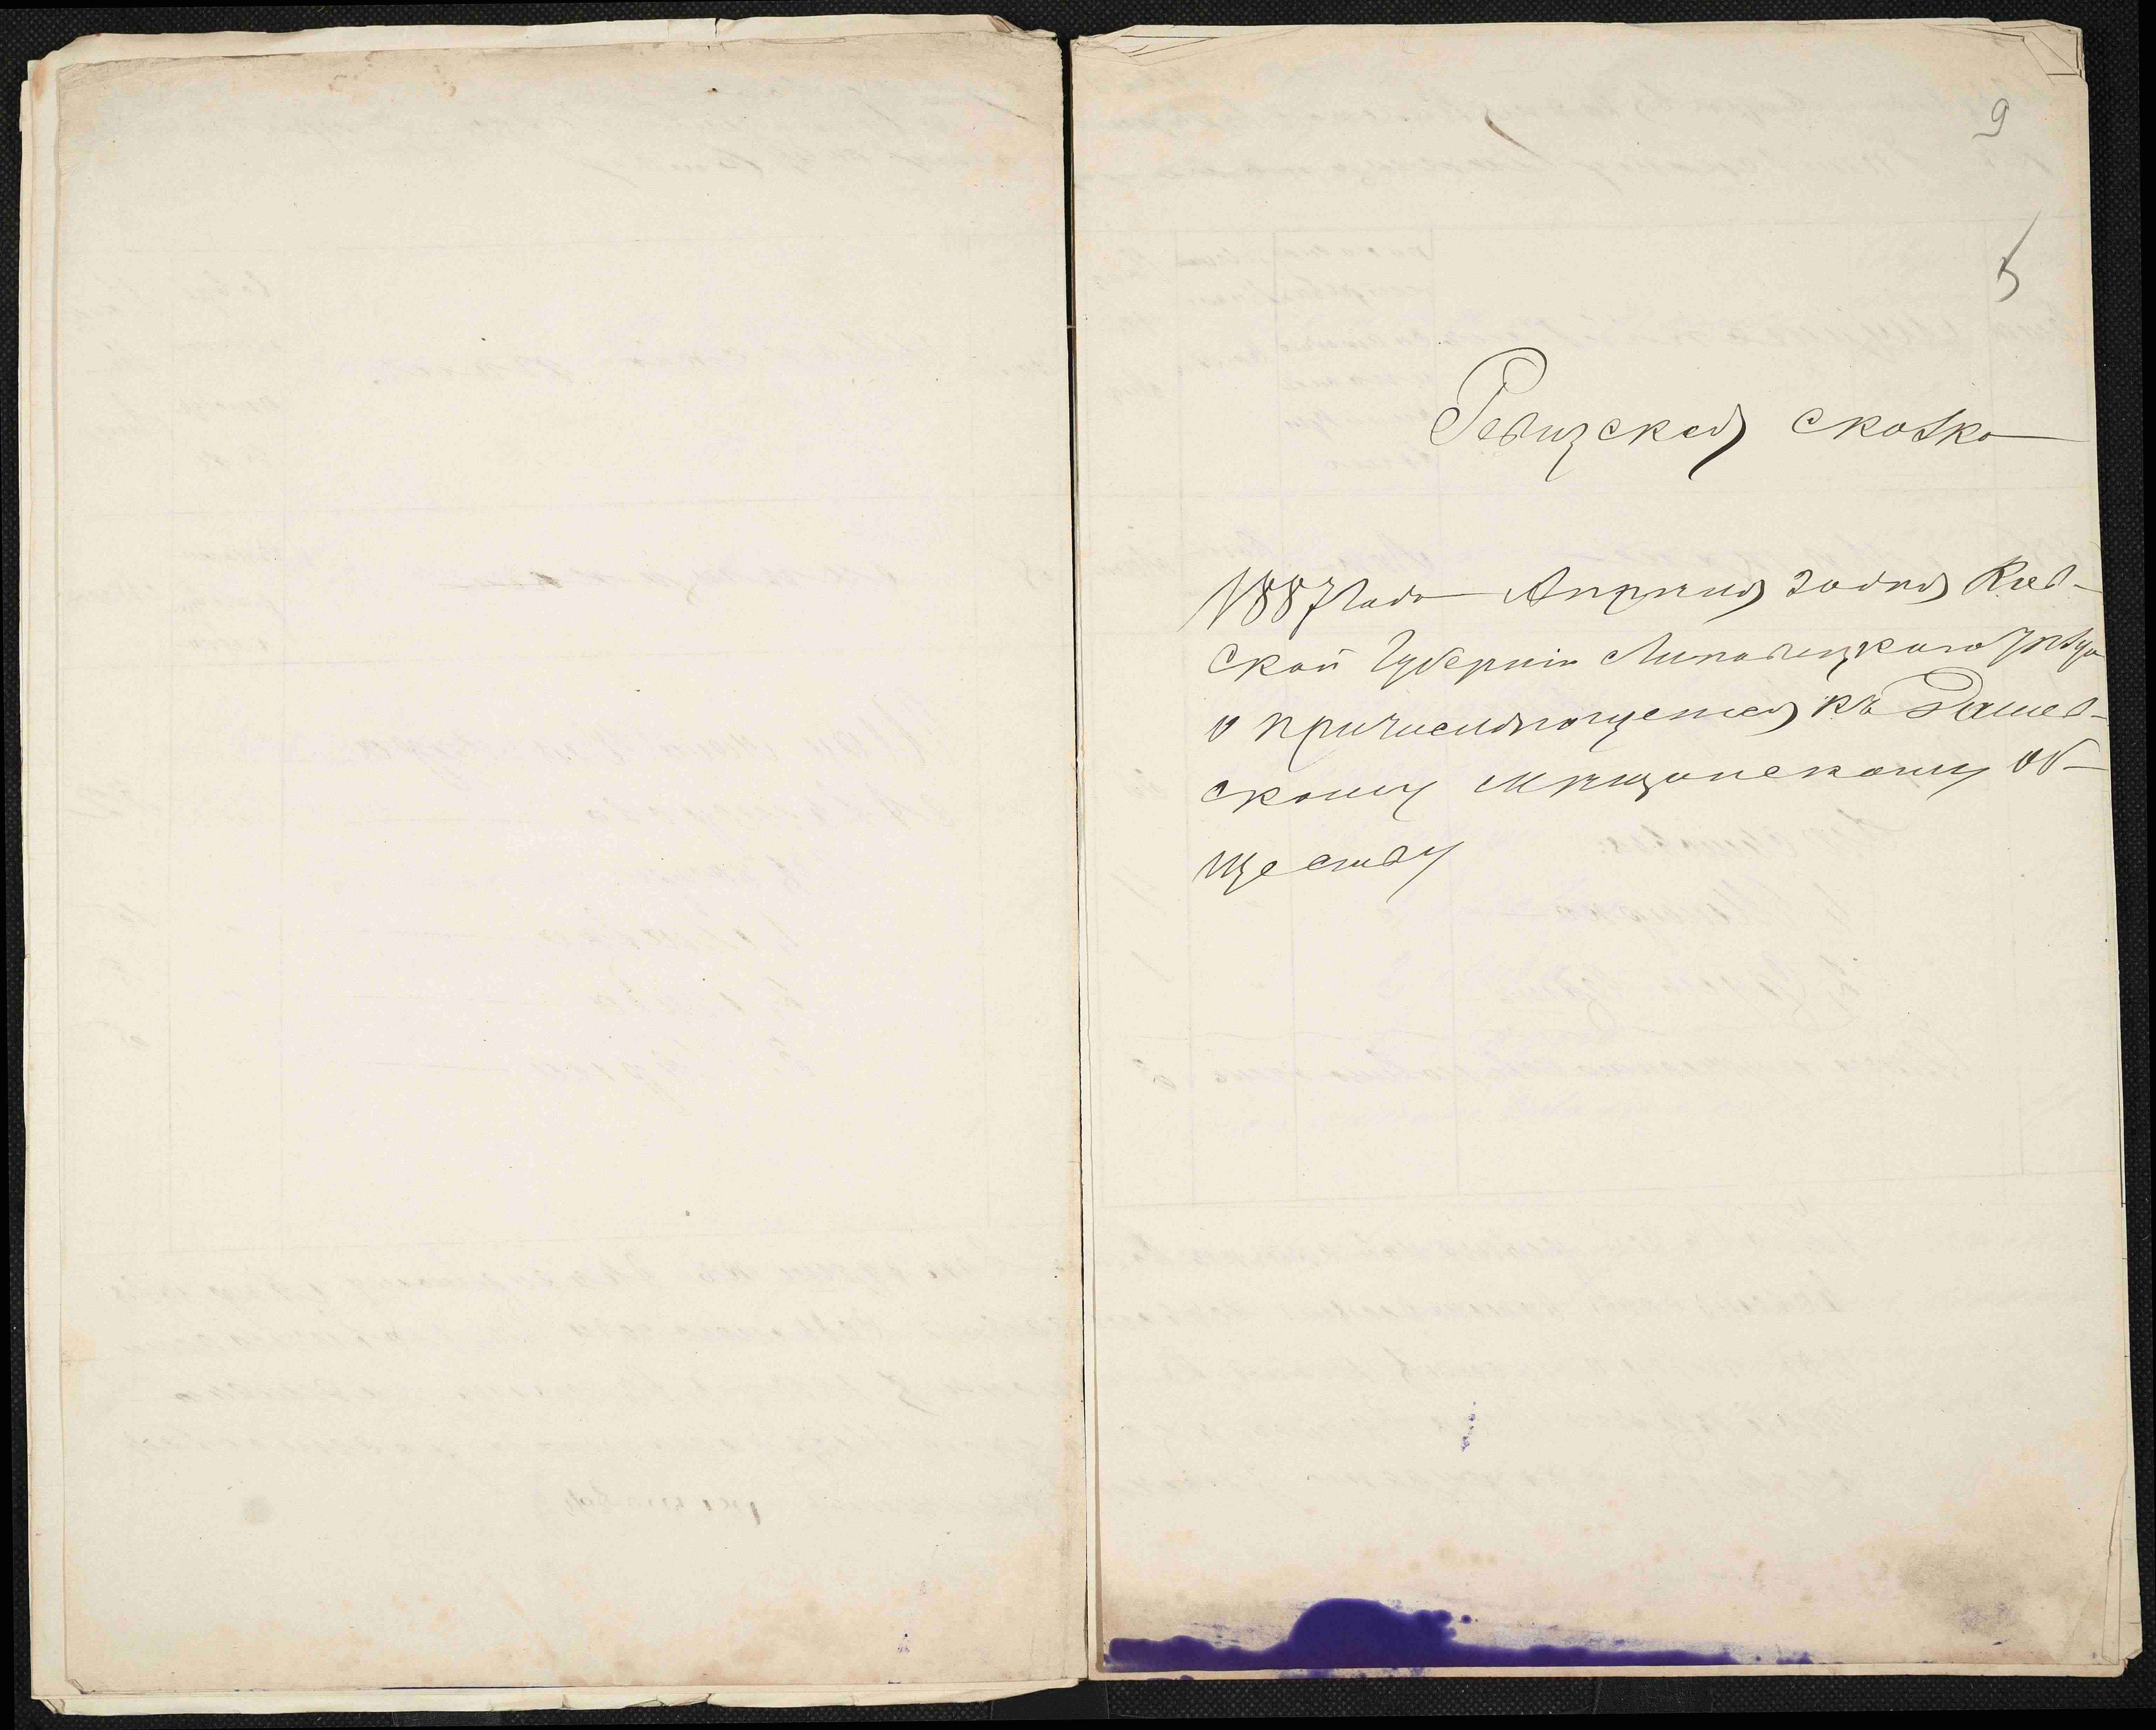 9
5
Ревизская сказка
1887 года Апреля 30 дня Киев-
ской Губерніи Липовецкаго уѣзда
о причисляющемся къ Дашев-
скому мещанскому об-
ществу